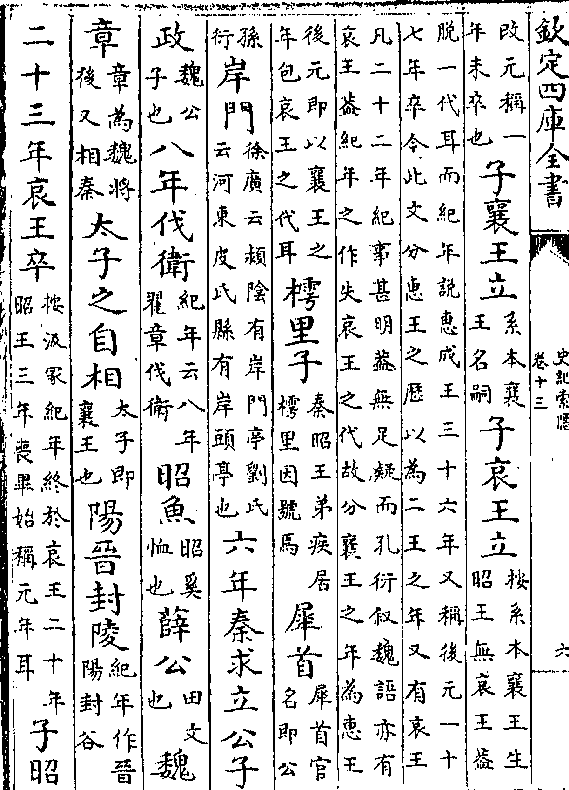 欽定四庫全書
史記索隱
卷十三
六
改元稱一
年未卒也
子襄王立
系本襄
王名嗣
子哀王立
按系本襄王生
昭王無哀王葢
脱一代耳而紀年説惠成王三十六年又稱後元一十
七年卒今此文分惠王之歴以為二王之年又有哀王
凡二十二年紀事甚明葢無足疑而孔衍叙魏語亦有
哀王葢紀年之作失哀王之代故分襄王之年為惠王
後元即以襄王之
年包哀王之代耳
樗里子
秦昭王弟疾居
樗里因號焉
犀首
犀首官
名即公
孫
衍
岸門
徐廣云潁隂有岸門亭劉氏
云河東皮氏縣有岸頭亭也
六年秦求立公子
政
魏公
子也
八年伐衛
紀年云八年
翟章伐衛
昭魚
昭奚
恤也
薛公
田文
也
魏
章
章為魏將
後又相秦
太子之自相
太子即
襄王也
陽晉封陵
紀年作晉
陽封谷
二十三年哀王卒
按汲冢紀年終於哀王二十年
昭王三年喪畢始稱元年耳
子昭